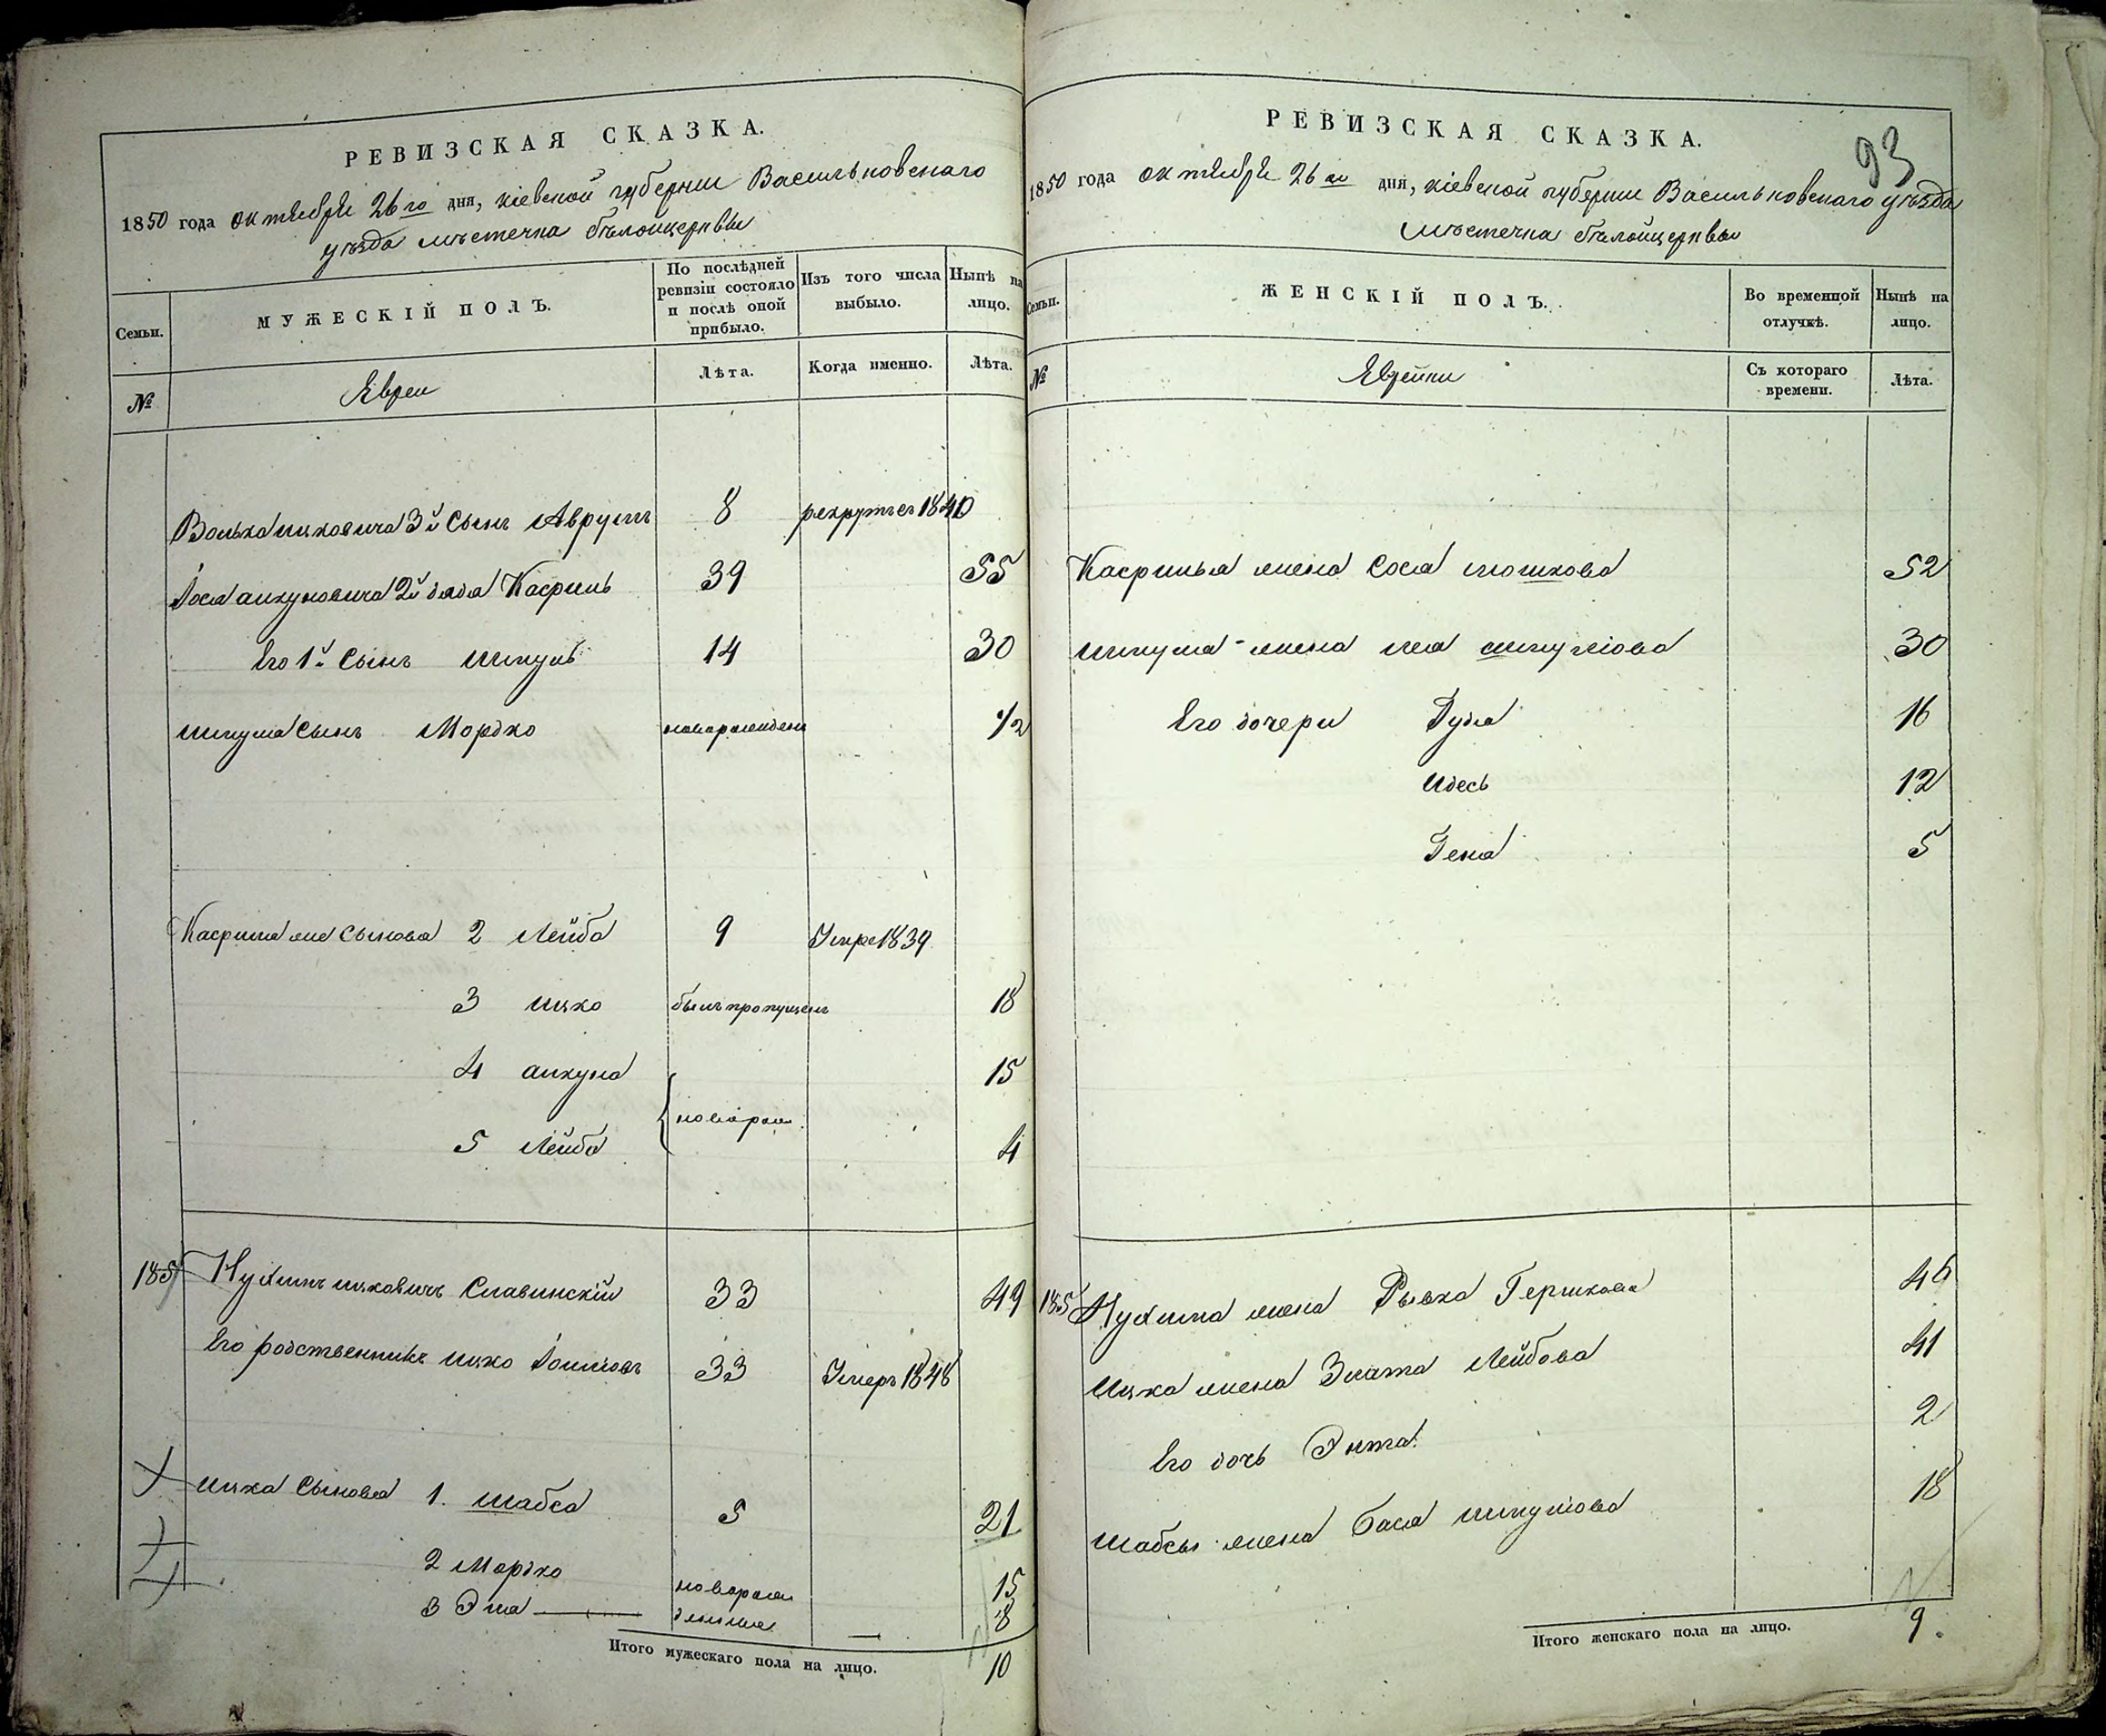 РЕВИЗСКАЯ СКАЗКА.
1850 года октября 26го дня, Кіевской губерніи Васильковскаго
уѣзда мѣстечка Бѣлойцеркви
Семьи.
МУЖЕСКІЙ ПОЛЪ.
По послѣдней ревизіи состояло и послѣ оной прибыло.
Изъ того числа выбыло.
Нынѣ на лицо.
№
Евреи
Лѣта.
Когда именно.
Лѣта.
Волька Ицковича 3й Сынъ Аврумъ 8 1840
2й дядя Касриль 39 55
Его 1й Сынъ Шмуль 14 30
Шмуля Сынъ Мордко новорожденъ 1/2
Касриля же Сыновья 2 Лейба 9 Умре 1839
3 Ицко былъ пропущенъ 18
4 Анкуна 15
новорож
5 Лейба 4
185 Нухимъ Ицковичъ Славинскій 33 49
Его родственникъ Ицко 33 Умеръ 1848
Ицка Сыновья 1. Шабса 5 21
2 Мордко новорож 15
3 Эля денные 8
Итого мужескаго пола на лицо. 10
РЕВИЗСКАЯ СКАЗКА.
93
1850 года октября 26го дня, Кіевской губерніи Васильковскаго уѣзда
мѣстечка Бѣлойцеркви
Семьи.
ЖЕНСКІЙ ПОЛЪ.
Во временной отлучкѣ.
Нынѣ на лицо.
№
Еврейки
Съ котораго времени.
Лѣта.
Касриля жена Сося Мошкова 52
Шмуля жена Лея Шмулiова 30
Его дочери Рудя 16
Идесь 12
Геня 5
185 Нухима жена Рывка Гершкова 46
Ицка жена Злата Лейбова 41
Его дочь Энта 2
Шабсы жена Бася Шмулiова 18
Итого женскаго пола на лицо. 9.